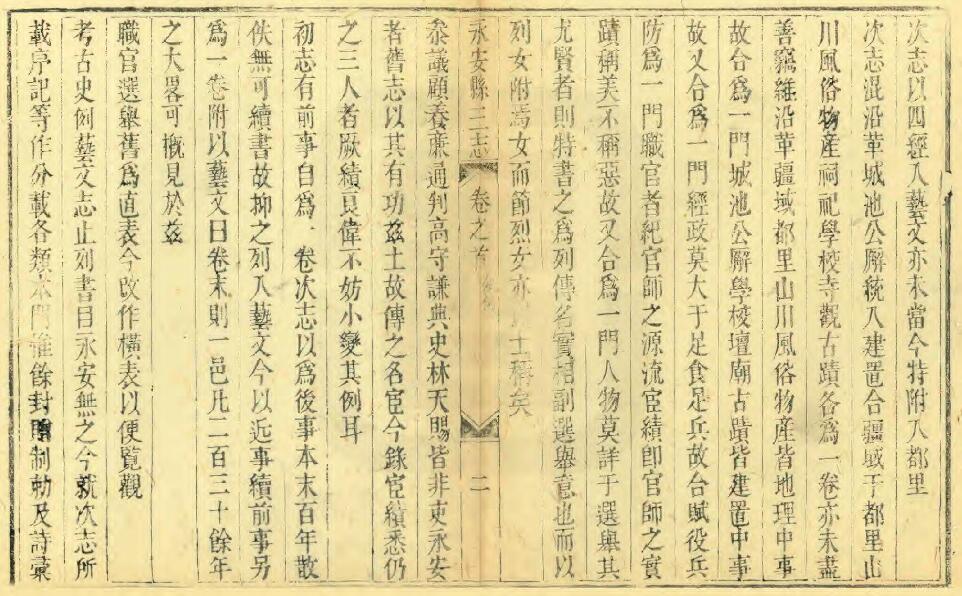 次志以四經入藝文亦未當今特附入都里
次志混沿革城池公廨統入建置合疆域于都里山
川風俗物產祠祀學校寺觀古蹟各爲一卷亦未盡
善竊維沿革疆域都里山川風俗物產皆地理中事
故合爲一門城池公廨學校壇廟古蹟皆建置中事
故又合爲一門經政莫大于足食足兵故合賦役兵
防爲一門職官者紀官師之源流宦績卽官師之實
蹟稱美不稱惡故又合爲一門人物莫詳于選舉其
尤賢者則特書之爲列傳名實相副選舉意也而以
列女附焉女而節烈女亦士稱矣
永安縣三志 卷之首 二
叅議顧養謙通判高守謙典史林天賜皆非吏永安
者舊志以其有功茲土故傳之名宦今錄宦績悉仍
之三人者厥績良偉不妨小變其例耳
初志有前事自爲一卷次志以爲後事本末百年散
佚無可續書故抑之列入藝文今以近事續前事另
爲一卷附以藝文曰卷末則一邑凡二百三十餘年
之大畧可概見於茲
職官選舉舊爲直表今改作橫表以便覽觀
考古史例藝文志止列書目永安無之今就次志所
載序記等作分載各類本門惟餘封贈制勅及詩彙